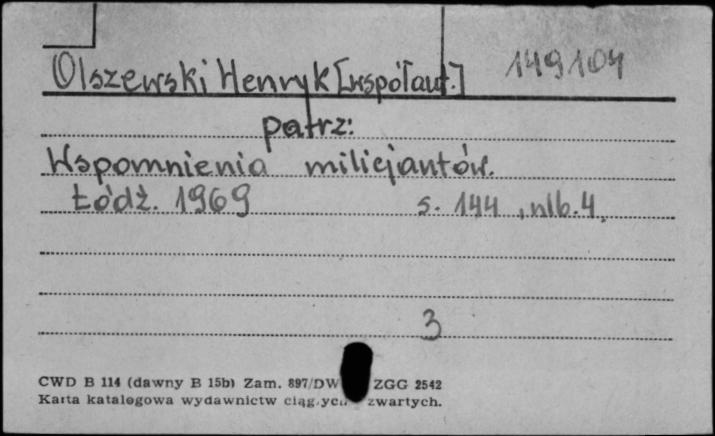 Olszewski Henryk [współaut.] 149104
patrz:
Wspomnienia milicjantów.
Łódź. 1969 s. 144, nlb. 4.
3
CWD B 114 (dawny B 15b) Zam. 897/DW ZGG 2542
Karta katalogowa wydawnictw zwartych.